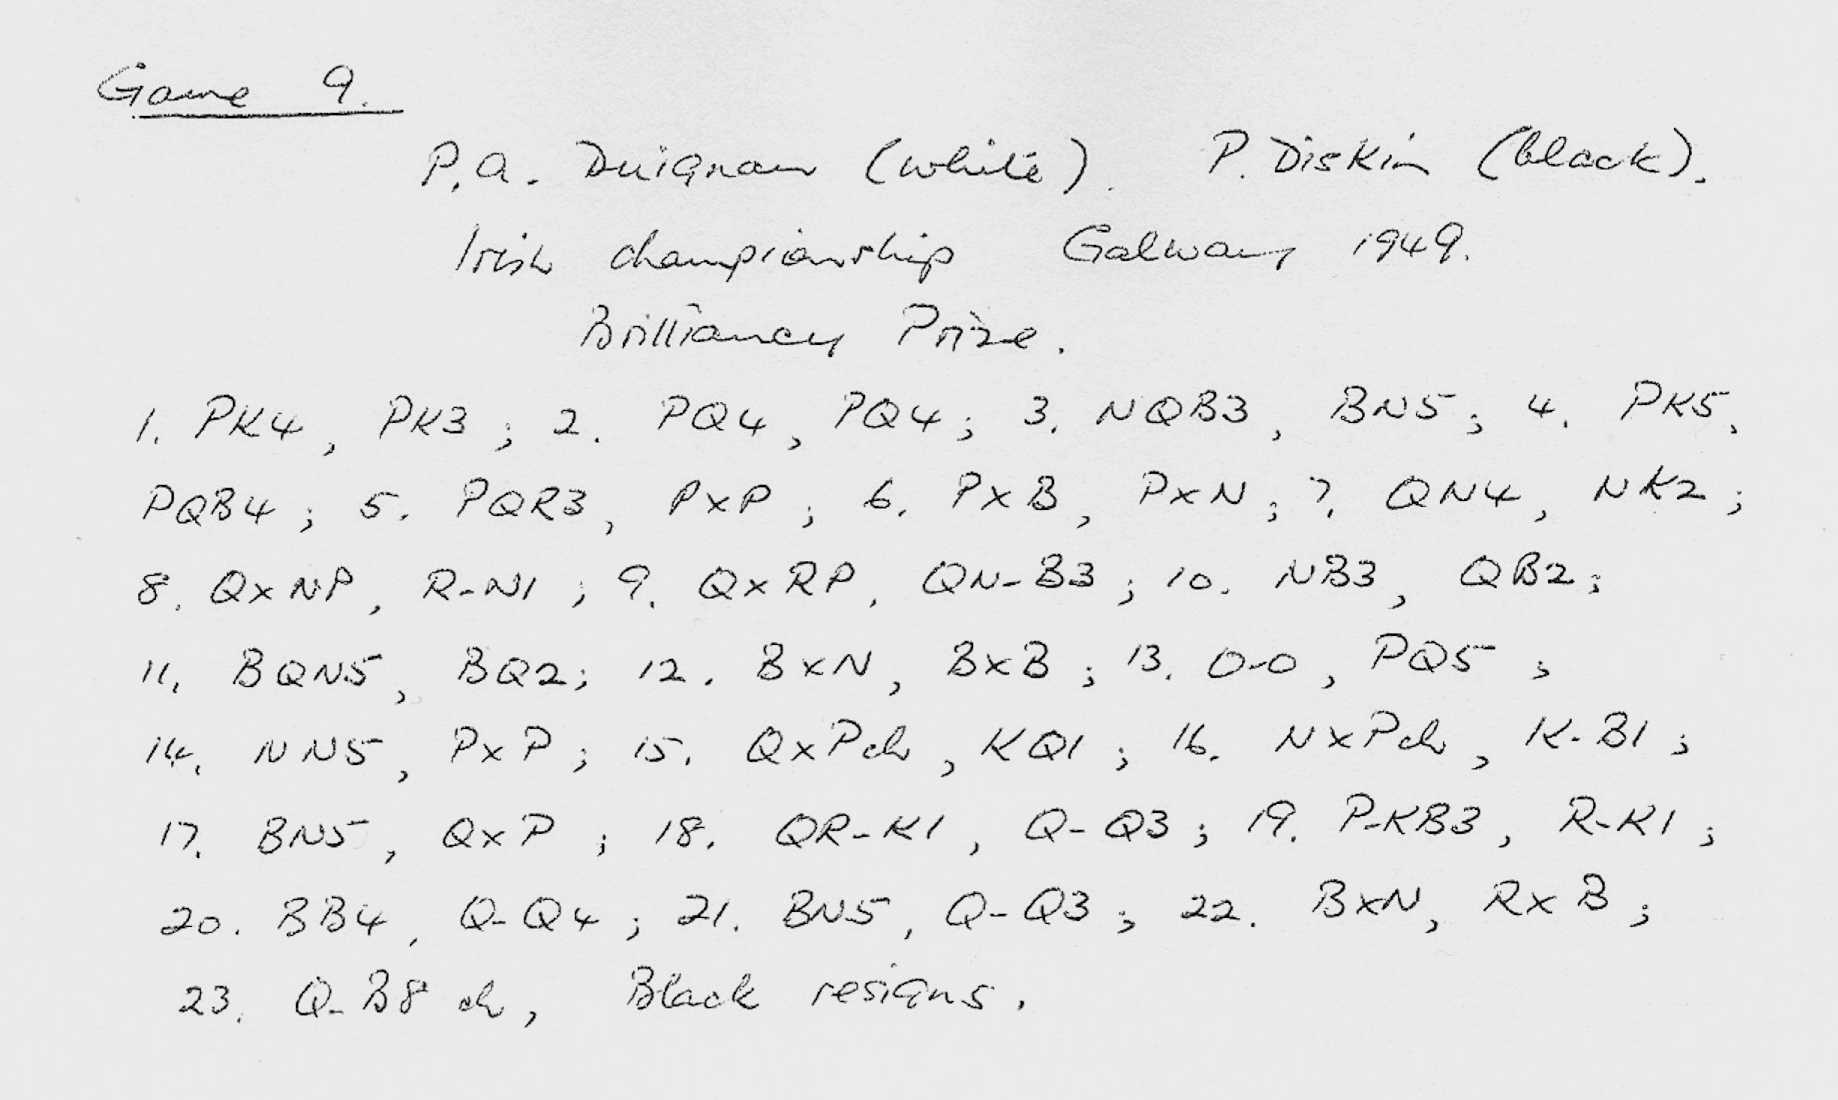 Game 9.
P.A. Duignan (white). P. Diskin (black).
Irish championship Galway 1949.
Brilliancy Prize.
1. PK4, PK3; 2. PQ4, PQ4; 3. NQB3, BN5; 4. PK5,
PQB4; 5. PQR3, PxP; 6. PxB, PxN; 7. QN4, NK2;
8. QxNP, R-N1; 9. QxRP, QN-B3; 10. NB3, QB2;
11. BQN5, BQ2; 12. BxN, BxB; 13. O-O, PQ5;
14. NN5, PxP; 15. QxPch, KQ1; 16. NxPch, K-B1;
17. BN5, QxP; 18. QR-K1, Q-Q3; 19. P-KB3, R-K1;
20. BB4, Q-Q4; 21. BN5, Q-Q3; 22. BxN, RxB;
23. Q-B8 ch, Black resigns.